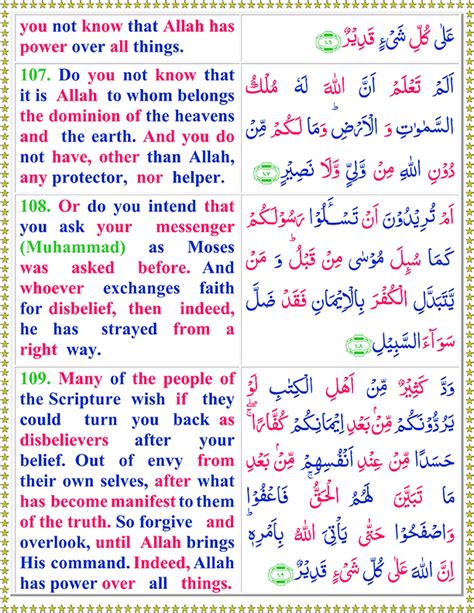 you not know that Allah has
power over all things.
عَلٰى كُلِّ شَىْءٍ قَدِيْرٌ ﴿١٠٦﴾
107. Do you not know that
it is Allah to whom belongs
the dominion of the heavens
and the earth. And you do
not have, other than Allah,
any protector, nor helper.
اَلَمْ تَعْلَمْ اَنَّ اللهَ لَهٗ مُلْكُ
السَّمٰوٰتِ وَ الْاَرْضِ ؕ وَمَا لَكُمْ مِّنْ
دُوْنِ اللهِ مِنْ وَّلِيٍّ وَّلَا نَصِيْرٍ ﴿١٠٧﴾
108. Or do you intend that
you ask your messenger
(Muhammad) as Moses
was asked before. And
whoever exchanges faith
for disbelief, then indeed,
he has strayed from a
right way.
اَمْ تُرِيْدُوْنَ اَنْ تَسْـَٔلُوْا رَسُوْلَكُمْ
كَمَا سُىِٕلَ مُوْسٰى مِنْ قَبْلُ ؕ وَ مَنْ
يَّتَبَدَّلِ الْكُفْرَ بِالْاِيْمَانِ فَقَدْ ضَلَّ
سَوَآءَ السَّبِيْلِ ﴿١٠٨﴾
109. Many of the people of
the Scripture wish if they
could turn you back as
disbelievers after your
belief. Out of envy from
their own selves, after what
has become manifest to them
of the truth. So forgive and
overlook, until Allah brings
His command. Indeed, Allah
has power over all things.
وَدَّ كَثِيْرٌ مِّنْ اَهْلِ الْكِتٰبِ لَوْ
يَرُدُّوْنَكُمْ مِّنْۢ بَعْدِ اِيْمَانِكُمْ كُفَّارًا ۚۖ
حَسَدًا مِّنْ عِنْدِ اَنْفُسِهِمْ مِّنْۢ بَعْدِ
مَا تَبَيَّنَ لَهُمُ الْحَقُّ ۚ فَاعْفُوْا
وَاصْفَحُوْا حَتّٰى يَاْتِيَ اللهُ بِاَمْرِهٖ ؕ
اِنَّ اللهَ عَلٰى كُلِّ شَىْءٍ قَدِيْرٌ ﴿١٠٩﴾